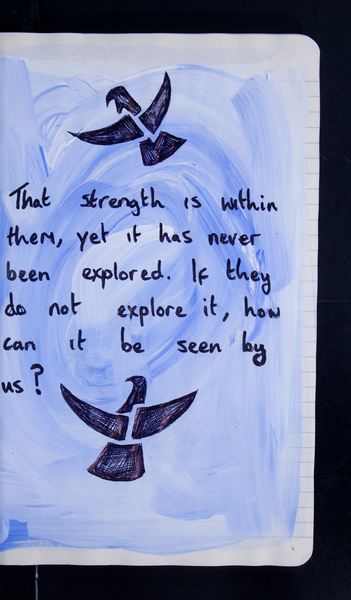 That strength is within
them, yet it has never
been explored. If they
do not explore it, how
can it be seen by
us?